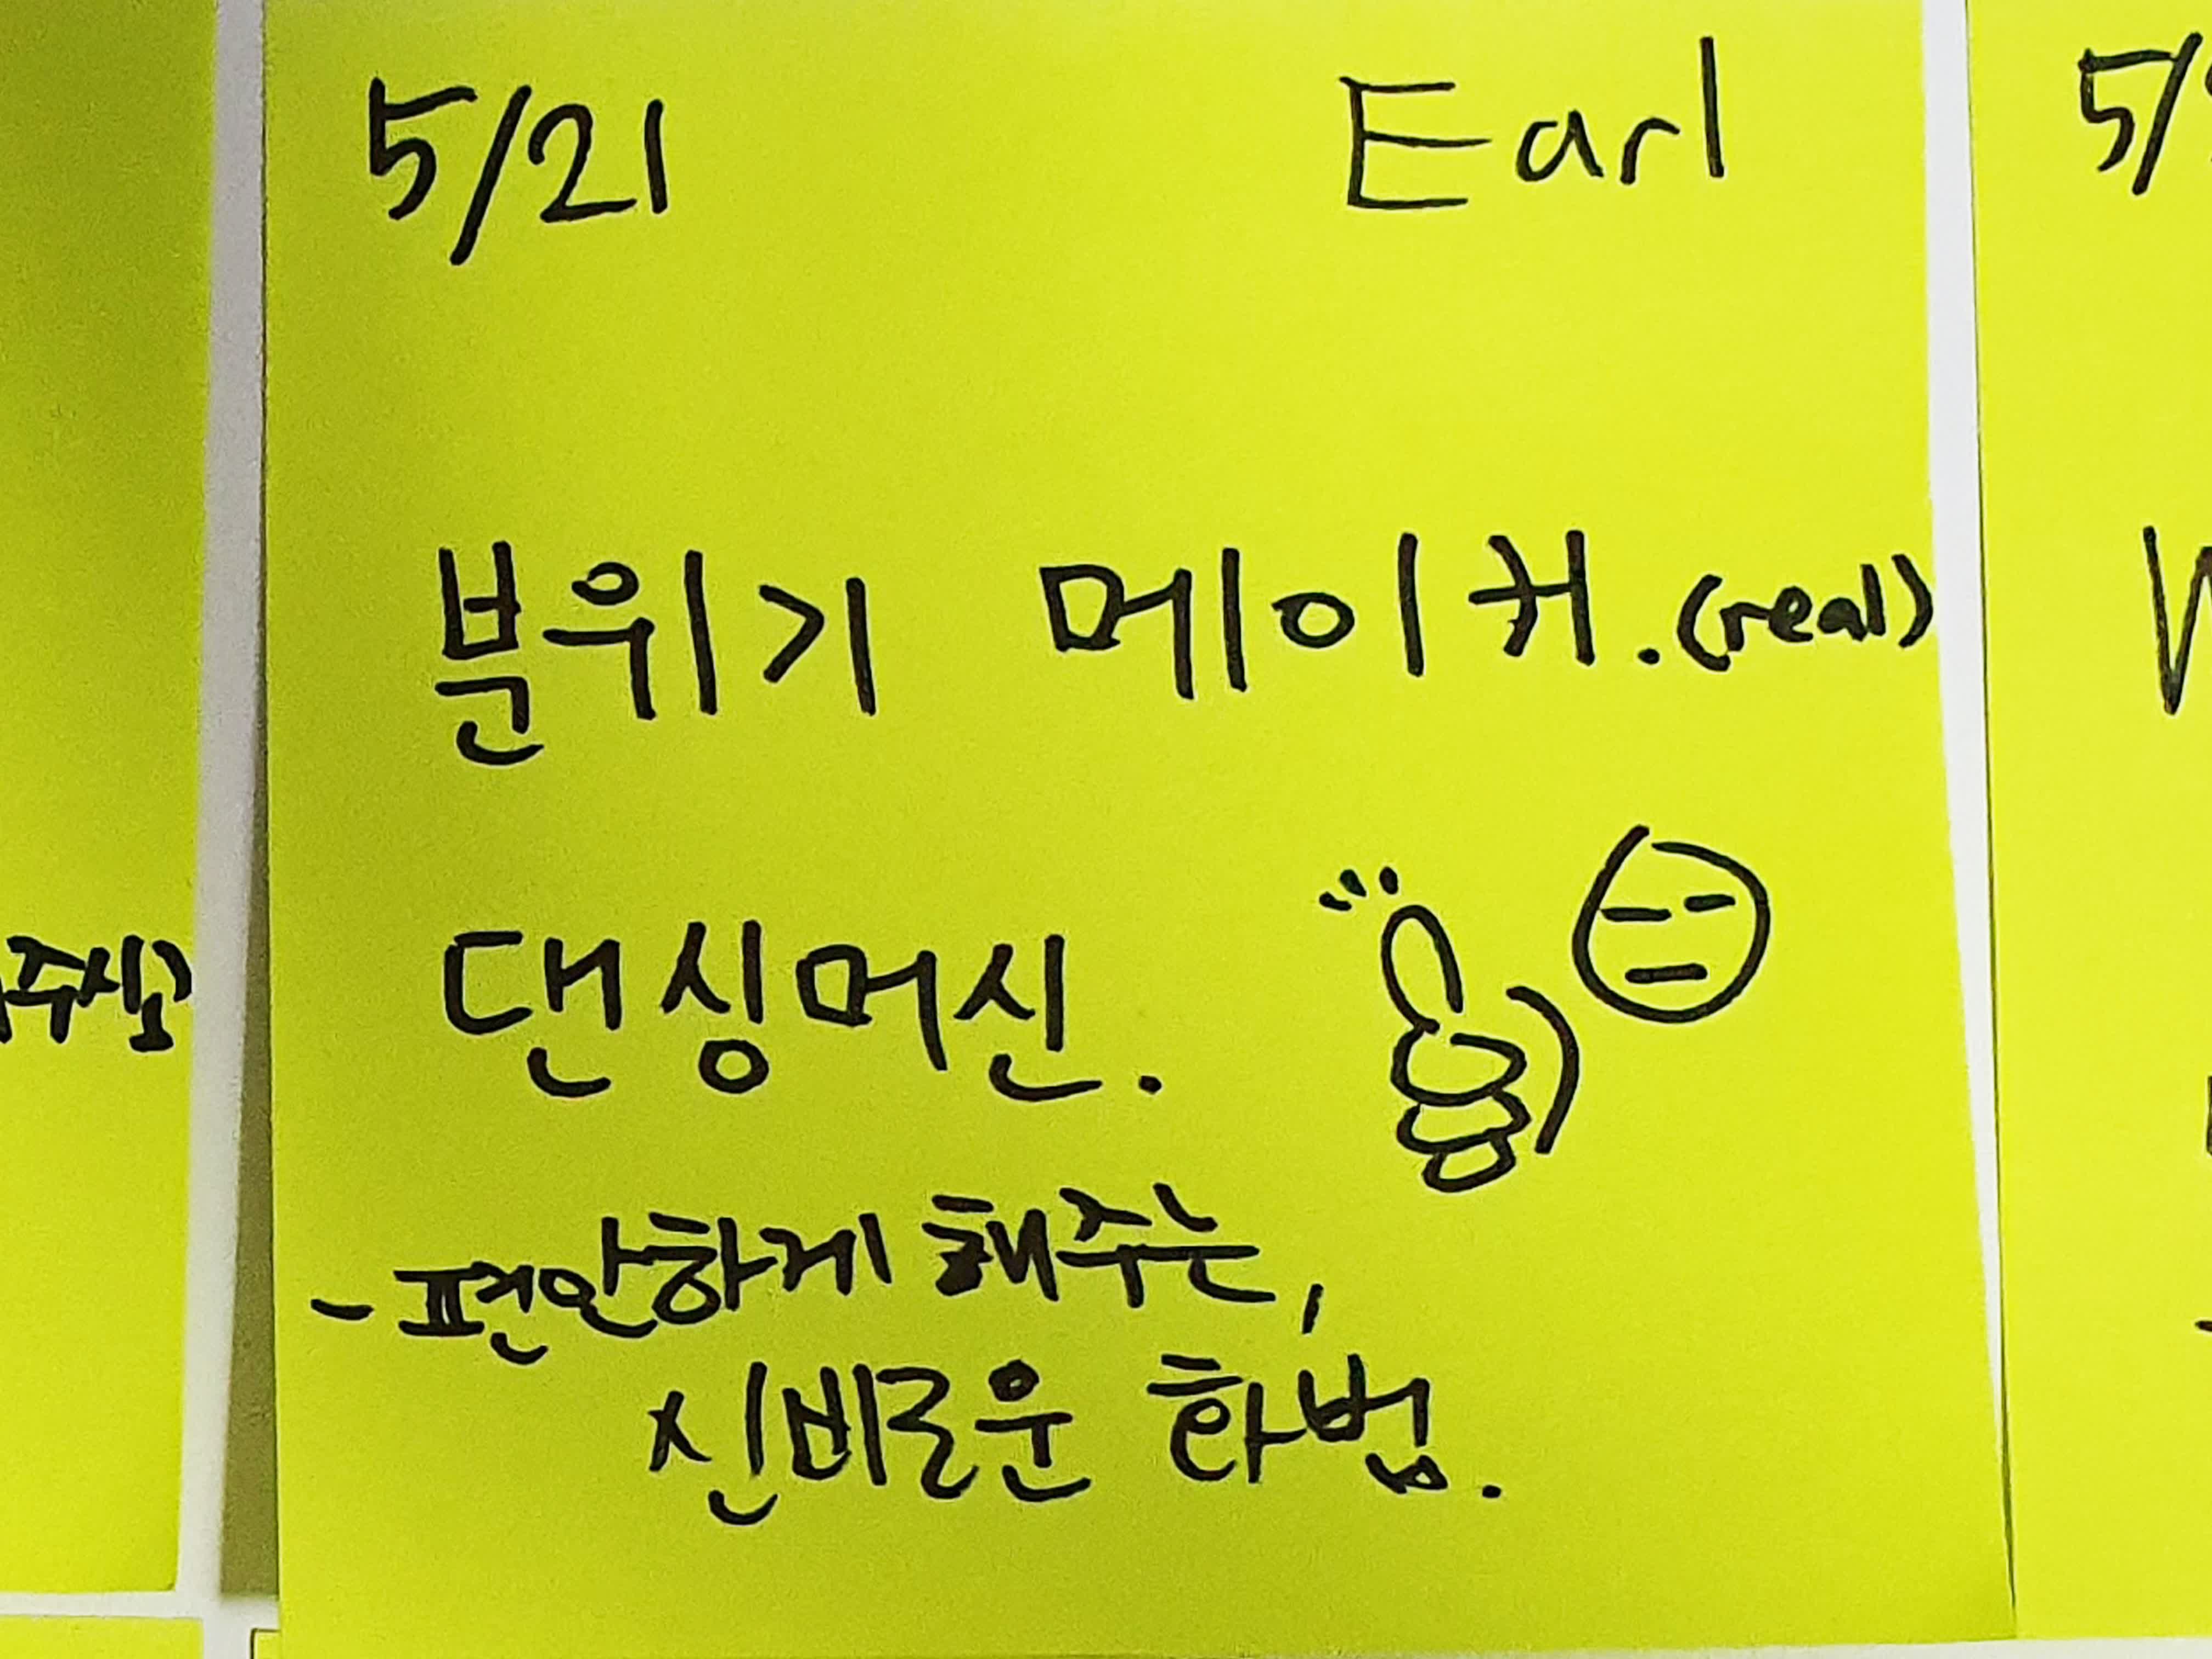 5/21 Earl
분위기 메이커. (real)
댄싱머신.
- 편안하게 해주는,
신비로운 화법.
5/